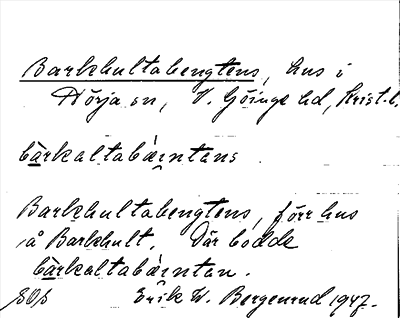 Barkhultabengtens, hus i
Nörja sn, V. Göinge hd, Krist. l.
bàrkaltabæ̀rntans
Barkhultabengtens, förr hus
å Barkhult. Där bodde
bàrkaltabæ̀rntan.
Erik W. Bergenrud 1947.